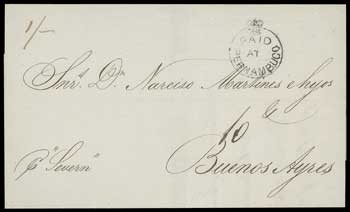 1/-
PAID
AT
PERNAMBUCO
Snrs. Dn Narciso Martinez e hijos
10
p "Severn"
Buenos Ayres